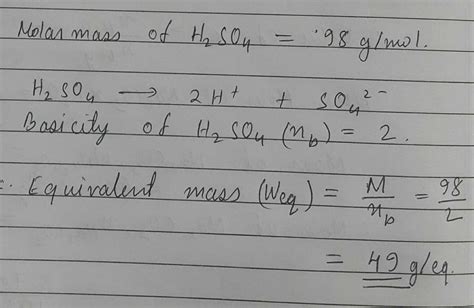 Molar mass of H₂SO₄ = 98 g/mol.
H₂SO₄ ⟶ 2H⁺ + SO₄²⁻
Basicity of H₂SO₄ (n_b) = 2.
∴ Equivalent mass (Weq) = M/n_b = 98/2
= 49 g/eq.